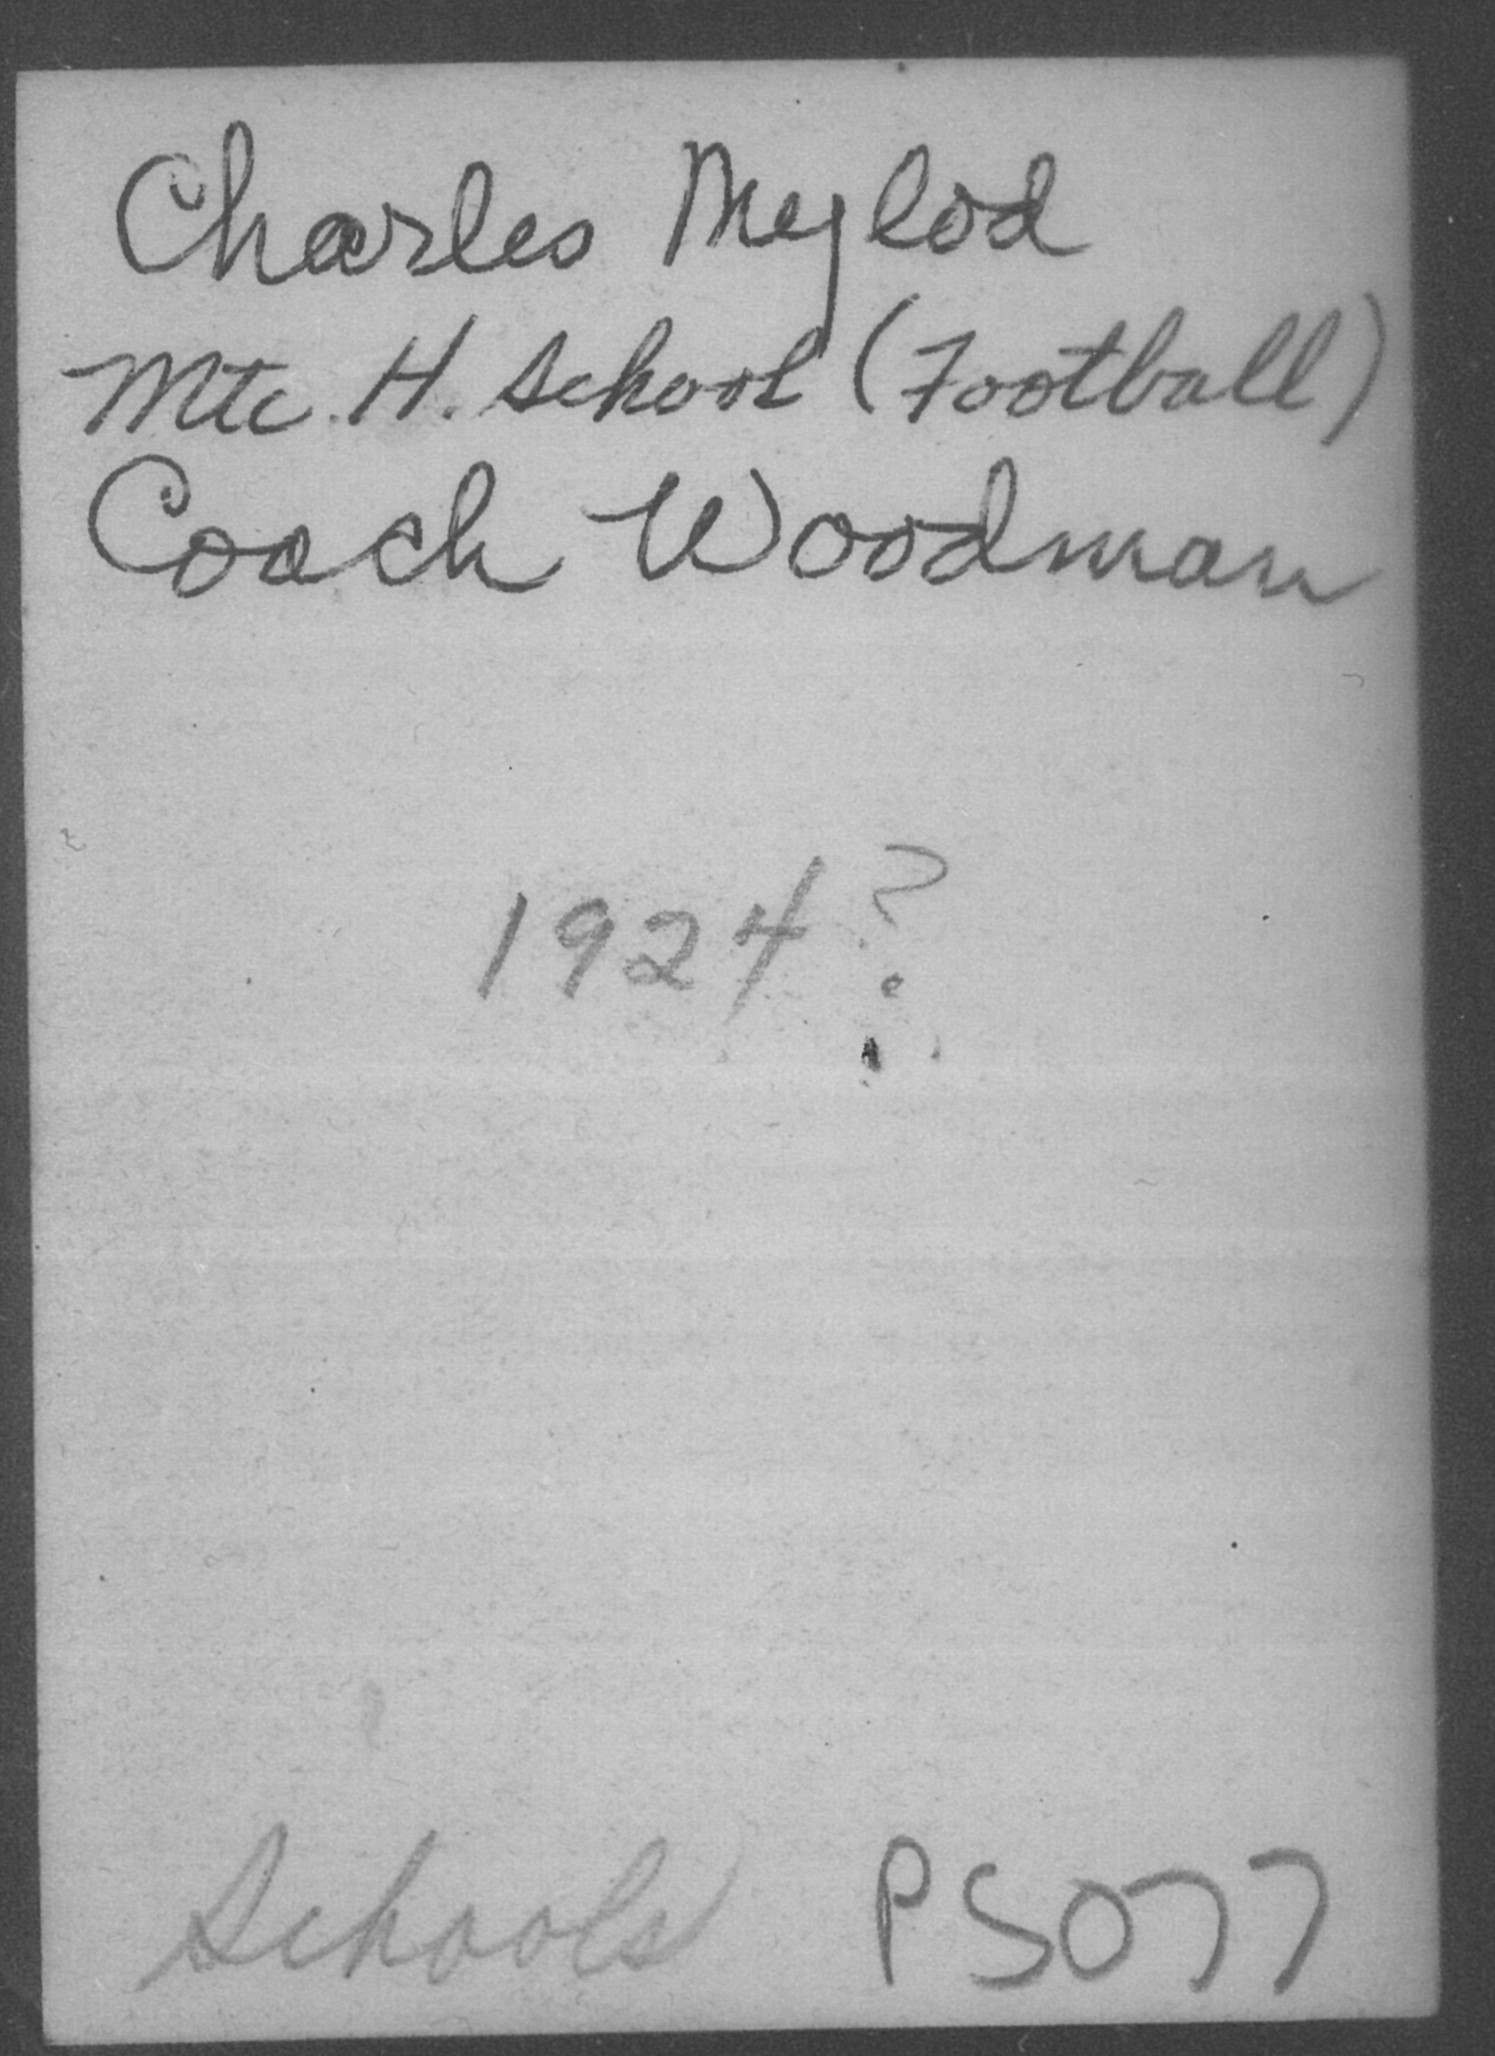 Charles Meylod
Mtc. H. School (Football)
Coach Woodman
1924?
Schools PS077